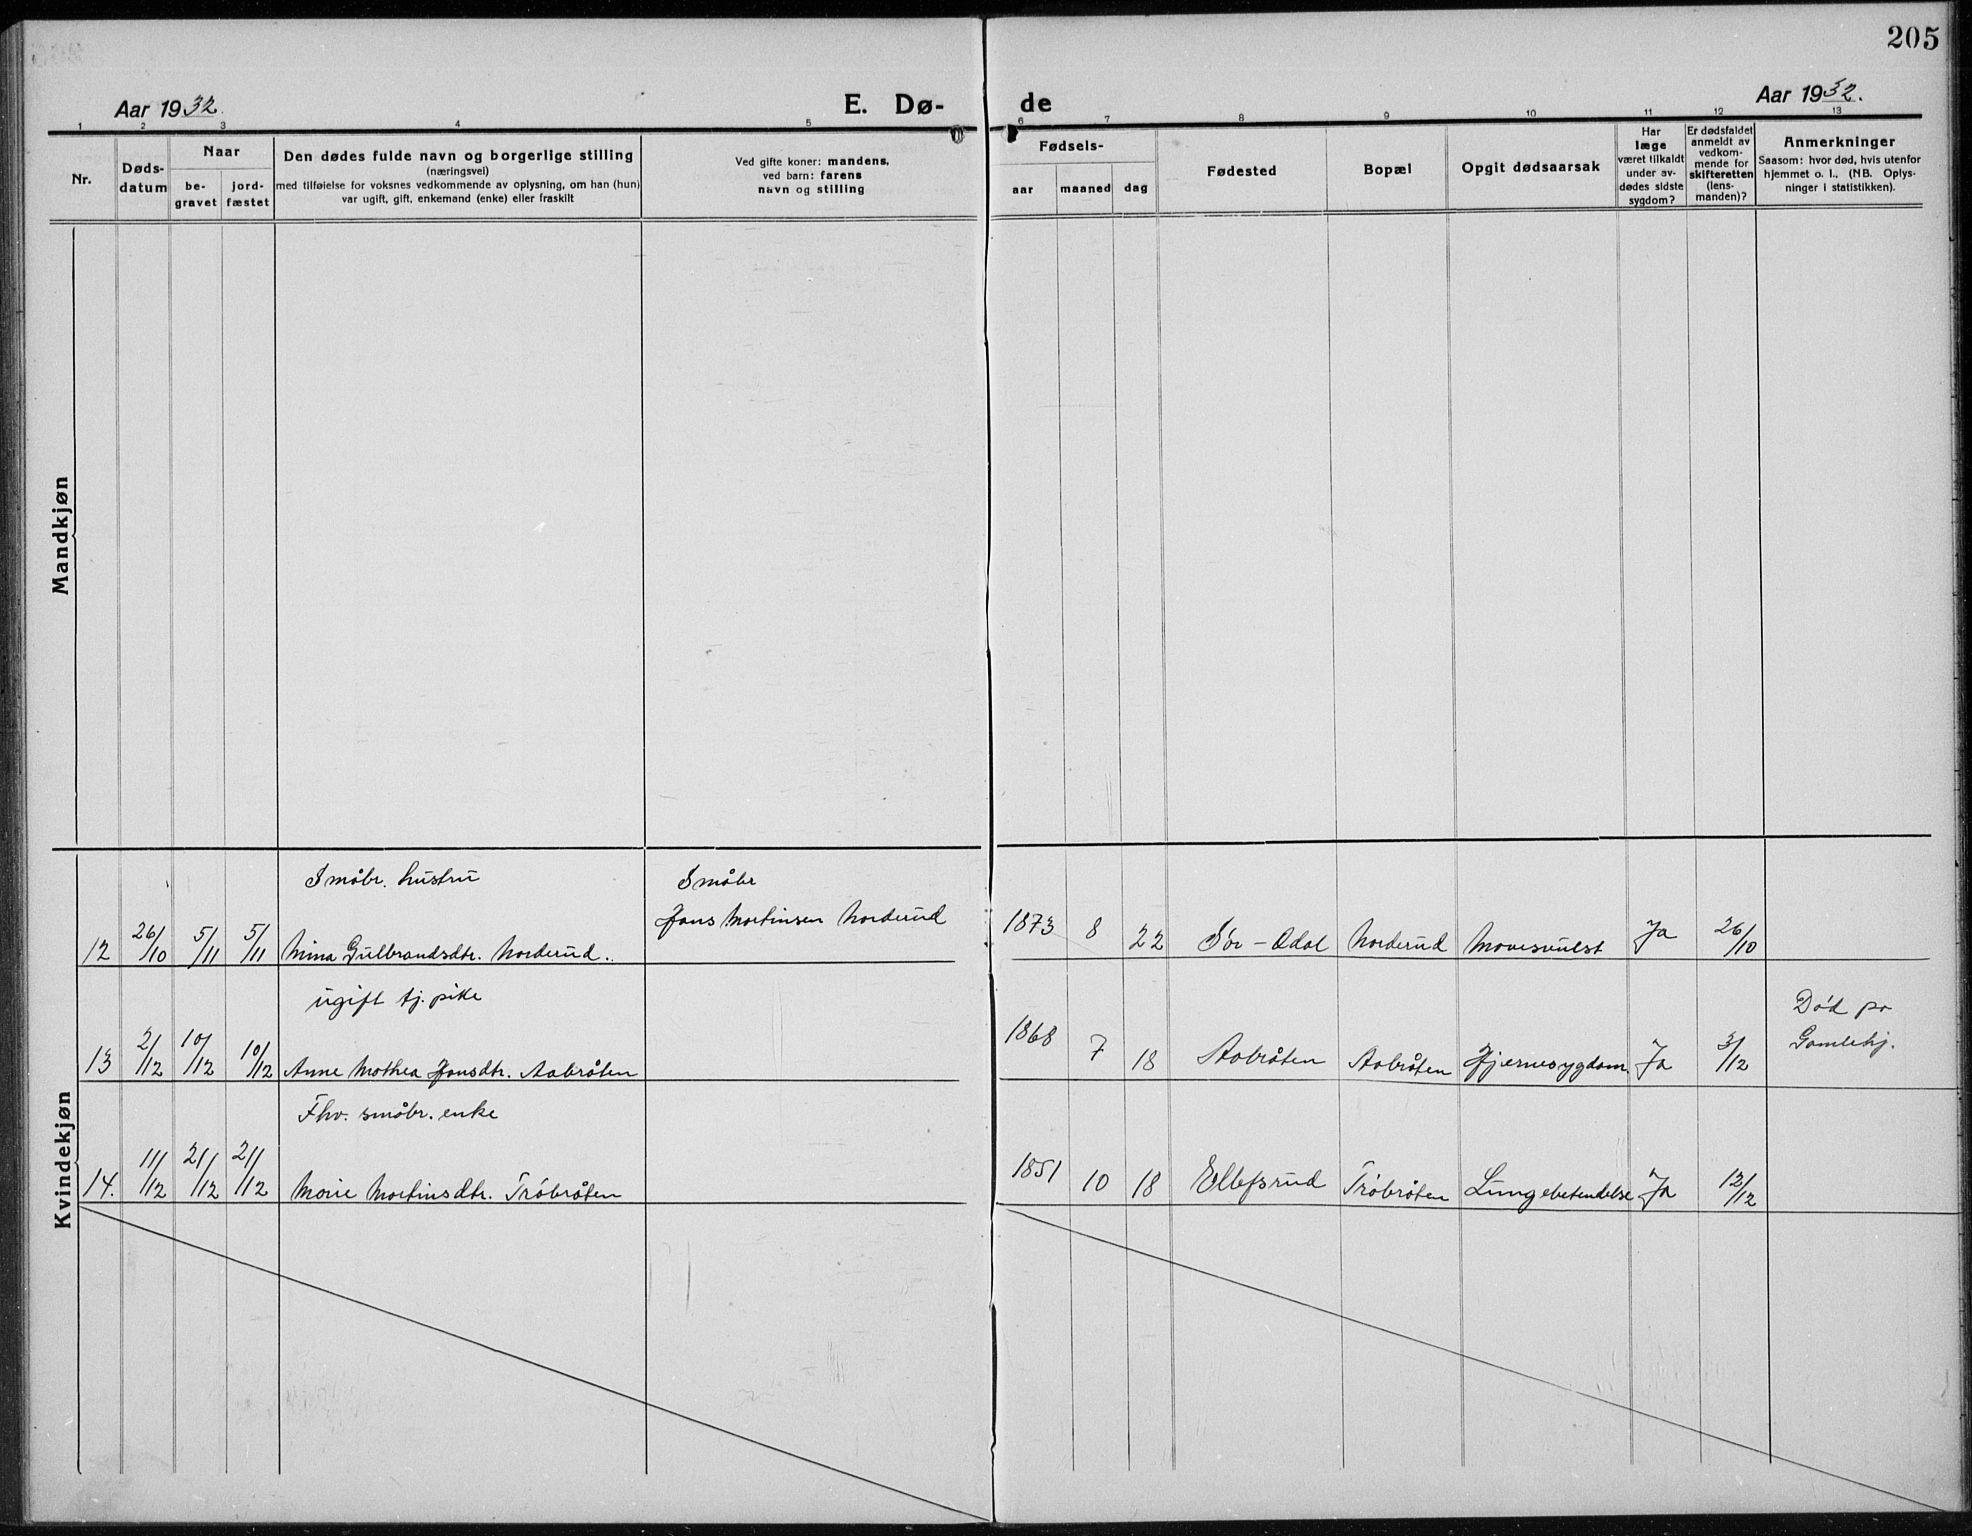 205
Aar 1932.
E. Dø-
de
Aar 1932.
1 2 3 4 5 6 7 8 9 10 11 12 13
Nr.
Døds-
datum
Naar
be-
gravet
jord-
fæstet
Den dødes fulde navn og borgerlige stilling
(næringsvei)
med tilføielse for voksnes vedkommende av oplysning, om han (hun)
var ugift, gift, enkemand (enke) eller fraskilt
Ved gifte koner: mandens,
ved barn: farens
navn og stilling
Fødsels-
aar
maaned
dag
Fødested
Bopæl
Opgit dødsaarsak
Har
læge
været tilkaldt
under av-
dødes sidste
sygdom?
Er dødsfaldet
anmeldt av
vedkom-
mende for
skifteretten
(lens-
manden)?
Anmerkninger
Saasom: hvor død, hvis utenfor
hjemmet o. l., (NB. Oplys-
ninger i statistikken).
Mandkjøn
Kvindekjøn
Småbr. hustru
Småbr
Hans Martinsen Norderud
12 26/10 5/11 5/11 Mina Gulbrandsdtr. Norderud. 1873 8 22 Sør-Odal Norderud Mavesvulst Ja 26/10
ugift tj. pike
Død på
Gamlehj.
13 2/12 10/12 10/12 Anne Mathea Hansdtr. Aabråten 1868 7 18 Aabråten Aabråten Hjernesygdom. Ja 3/12
Fhv. småbr. enke
14. 11/12 21/12 21/12 Marie Martinsdtr. Tråbråten 1851 10 18 Ellefsrud Tråbråten Lungebetendelse Ja 12/12